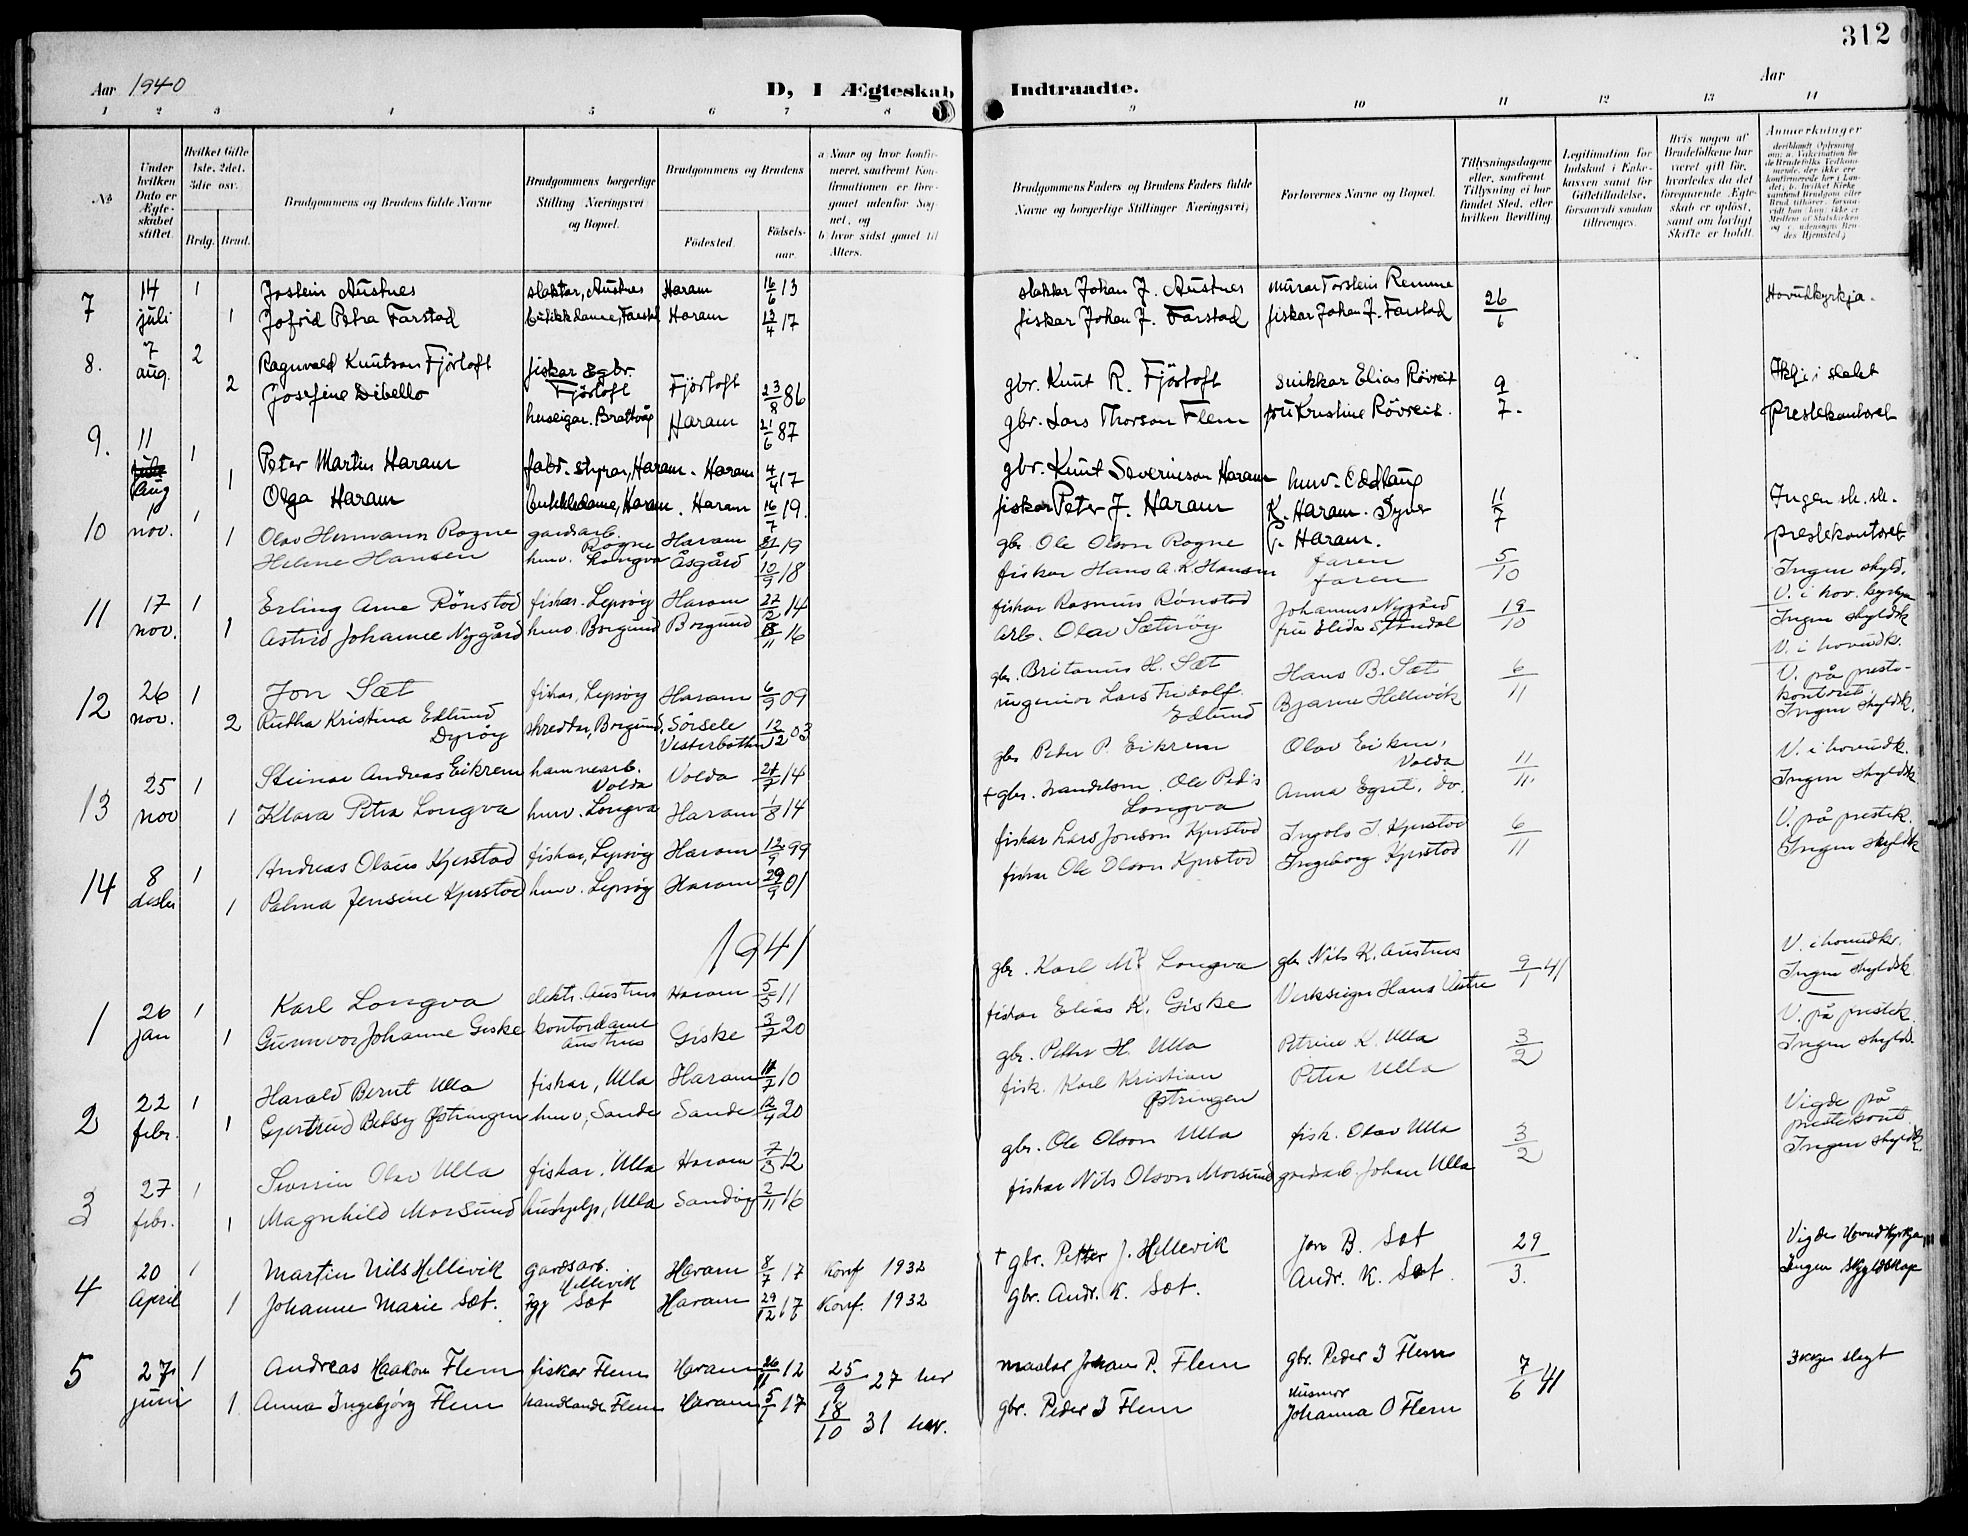 312
Aar 1940
D, I Ægteskab Indtraadte.
Aar
1 2 3 4 5 6 7 8 9 10 11 12 13 14
№
Under hvilken Dato er Ægteskabet stiftet.
Hvilket Gifte 1ste, 2det, 3die osv.
Brdg. Brud.
Brudgommens og Brudens fulde Navne
Brudgommens borgerlige Stilling Næringsvei og Bopæl.
Brudgommens og Brudens
Fødested. Fødselsaar.
a Naar og hvor konfirmeret, saafremt Konfirmationen er foregaaet udenfor Sognet, og
b hvor sidst gaaet til Alters.
Brudgommens Faders og Brudens Faders fulde Navne og borgerlige Stillinger Næringsvei)
Forlovernes Navne og Bopæl.
Tillysningsdagene eller, saafremt Tillysning ei har fundet Sted, efter hvilken Bevilling.
Legitimation for Indskud i Enkekassen samt for Giftetilladelse, forsaavidt saadan tiltrænges.
Hvis nogen af Brudefolkene har været gift før, hvorledes da det foregaaende Ægteskab er opløst, samt om lovligt Skifte er holdt.
Anmærkninger
7 14 juli 1 Jostein Austnes slaktar, Austnes Haram 16/6 13 slaktar Johan J. Austnes murar Torstein Remme 26/6 Hovudkyrkja.
1 Jofrid Petra Farstad butikkdame, Farstad Haram 13/4 17 fiskar Johan J. Farstad fiskar Johan J. Farstad
8. 7 aug. 2 Ragnvald Knutson Fjörtoft fiskar og gbr. Fjörtoft Fjörtoft 23/8 86 gbr. Knut R. Fjörtoft snikkar Elias Rövreit 9/7.
2 Josefine Dibello huseigar. Brattvåg Haram 21/6 87 gbr. Lars Thorson Flem fru Kristine Rövreit. prestekontoret
9. 11 aug 1 Peter Martin Haram fabr. styrar, Haram. Haram 4/4 17 gbr. Knut Severinson Haram 11/7 Ingen sk. sk.
1 Olga Haram butikkdame, Haram. Haram 16/7 19. fiskar Peter J. Haram K. Haram. P. Haram. prestekontoret
10 10 nov. 1 Olav Hermann Rogne gardsarb. Rogne Haram 19 gbr Ole Olson Rogne faren 5/10 Ingen skyld.
1 Helene Hansen husv. Longva Åsgård 10/9 18 fiskar Hans A. K. Hansen faren V. i hov. kyrkja
11 17 nov. 1 Erling Arne Rönstad fiskar. Lepsöy Haram 14 fiskar Rasmus Rönstad Johannes Nygård 19/10 Ingen skyldsk
1 Astrid Johanne Nygård husv. Borgund Borgund 16 arb. Olav Sæteröy fru Elida Strandal V. i hovudk.
12 26 nov. 1 Jon Sæt fiskar, Lepsöy Haram 6/9 09 gbr. Britanus H. Sæt Hans B. Sæt 6/11 V. på prestekontoret.
2 Rutha Kristina Edlund Dyröy skreddar, Borgund, Sorsele Vesterbotten 12/12 03 ingeniör Lars Fridolf Edlund Bjarne Hellevik Ingen skyldsk.
13 25 nov 1 Steinar Andreas Eikrem hamnearb. Volda Volda 14 gbr Peter P. Eikrem Olav Eikrem, Volda 11/11. V. i hovudk.
1 Klara Petra Longva husv. Longva Haram 1/8 14 + gbr. handelsm. Ole Peder Longva Anna Egset, do. Ingen skyldsk
14 8 desbr 1 Andreas Olaus Kjerstad fiskar, Lepsöy Haram 12/9 99 fiskar Lars Jonson Kjerstad Ingolv J. Kjerstad 6/11 V. på prestek.
1 Palma Jensine Kjerstad husv. Lepsöy Haram 29/9 01 fiskar Ole Olson Kjerstad Ingeborg Kjerstad Ingen skyldsk
1941
1 26 jan 1 Karl Longva elektr. Austnes Haram 5/5 11 gbr. Karl M. Longva gbr. Nils K. Austnes 9/1 41 V. i hovudkr.
1 Gunnvor Johanne Giske kontordame Austnes Giske 3/7 20 fiskar Elias K. Giske Verkseigar Hans Vestre Ingen skyldsk
2 22 febr. 1 Harald Bernt Ulla fiskar, Ulla Haram 10 gbr. Petter H. Ulla Petrine K. Ulla 3/2 V. på prestek.
1 Gjertrud Betsy Östringen husv, Sande Sande 12/4 20 fisk. Karl Kristian Östringen Petra Ulla Ingen skyld.
3 27 febr. 1 Severin Olav Ulla fiskar. Ulla Haram 7/3 12 gbr. Ole Olson Ulla fisk. Olav Ulla 3/2 Vigde på prestekont
1 Magnhild Morsund hushjelp, Ulla Sandöy 2/11 16 fiskar Nils Olson Morsund gardsarb. Johan Ulla Ingen skyldsk.
4 20 April 1 Martin Nils Hellevik gardsarb. Hellevik Haram 8/7 17 Konf 1932 + gbr. Petter J. Hellevik Jon B. Sæt 29/3. Vigde Hovudkyrkja
1 Johanne Marie Sæt. Sæt Haram 29/12 16 Konf. 1932 gbr. Andr. K. Sæt. Andr. K. Sæt. Ingen skyldskap
5 27 juni 1 Andreas Haakon Flem fiskar Flem Haram 26/11 12 25/9 27 her maalar Johan P. Flem gbr. Peder I Flem 7/6 41 Ikkje slegt
1 Anna Ingebjörg Flem handlande Flem Haram 5/1 17 18/10 31 her. gbr. Peder I Flem Husmor Johanna O Flem